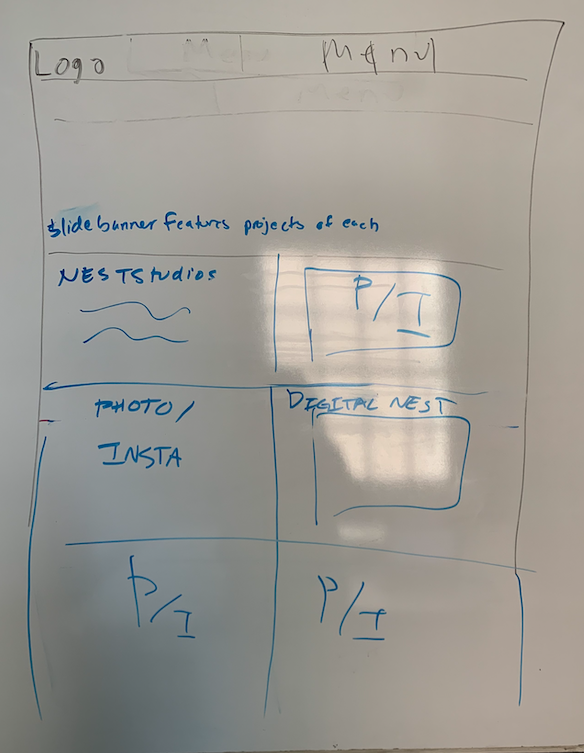 Logo Menu
Menu
Slidebanner features projects of each
NEST Studios
P/I
PHOTO/
INSTA
DIGITAL NEST
P/I
P/I